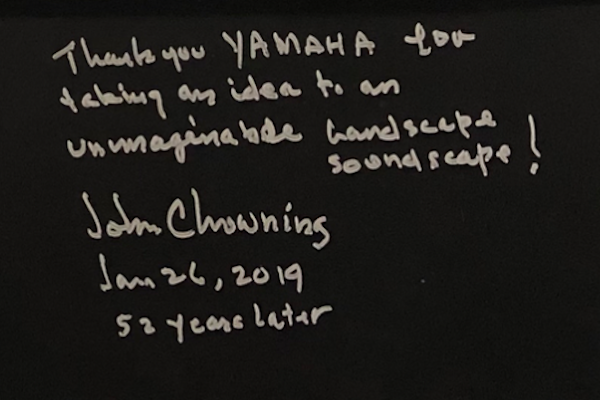 Thank you YAMAHA for
taking an idea to an
unimaginable landscape
soundscape!
John Chowning
Jan 26, 2019
52 years later